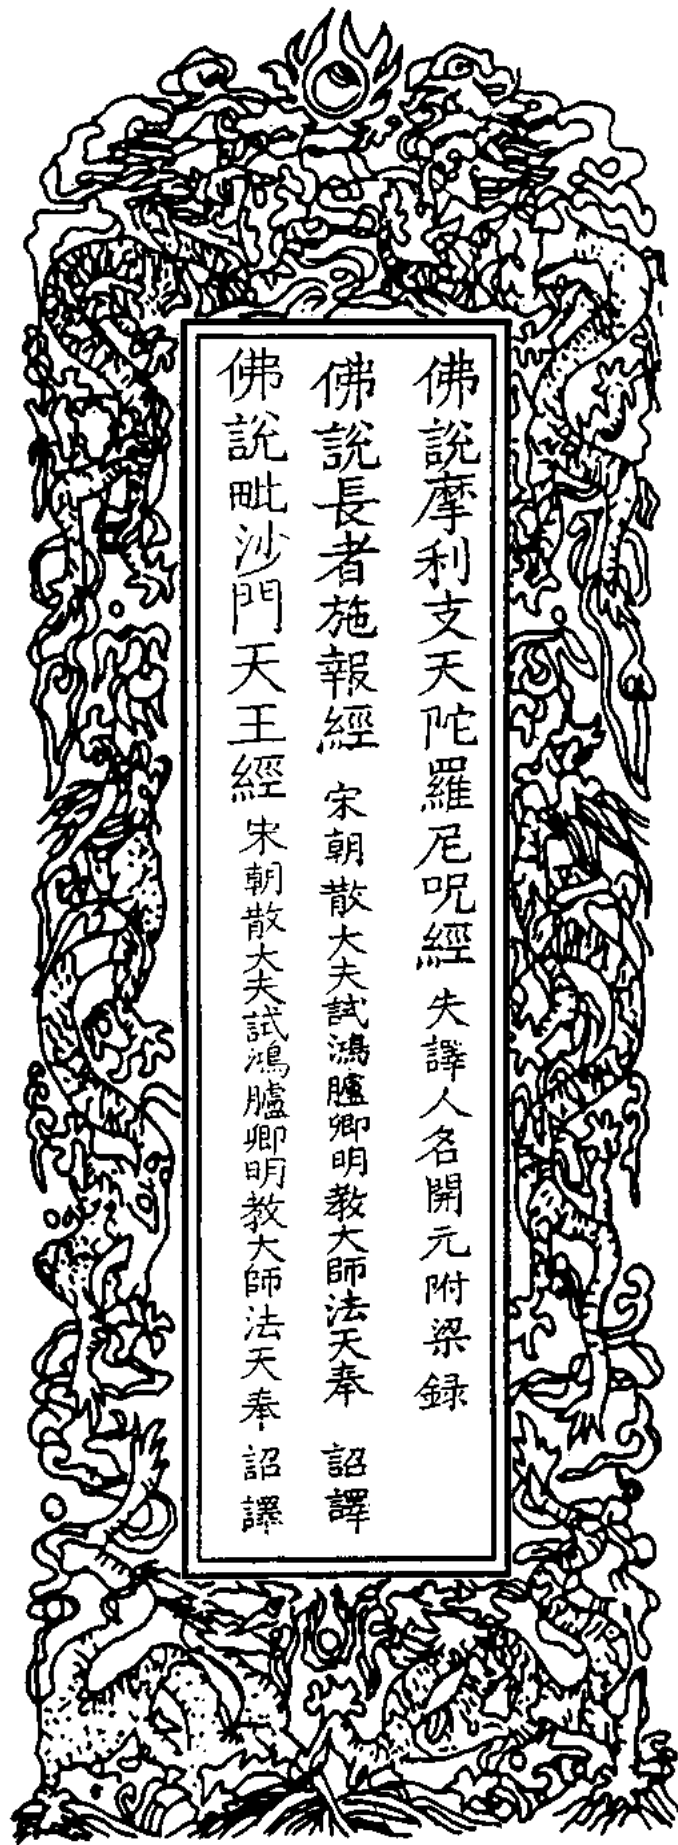 佛說摩利支天陀羅尼呪經 失譯人名開元附梁録
佛說長者施報經 宋朝散大夫試鴻臚卿明教大師法天奉 詔譯
佛說毗沙門天王經 宋朝散大夫試鴻臚卿明教大師法天奉 詔譯